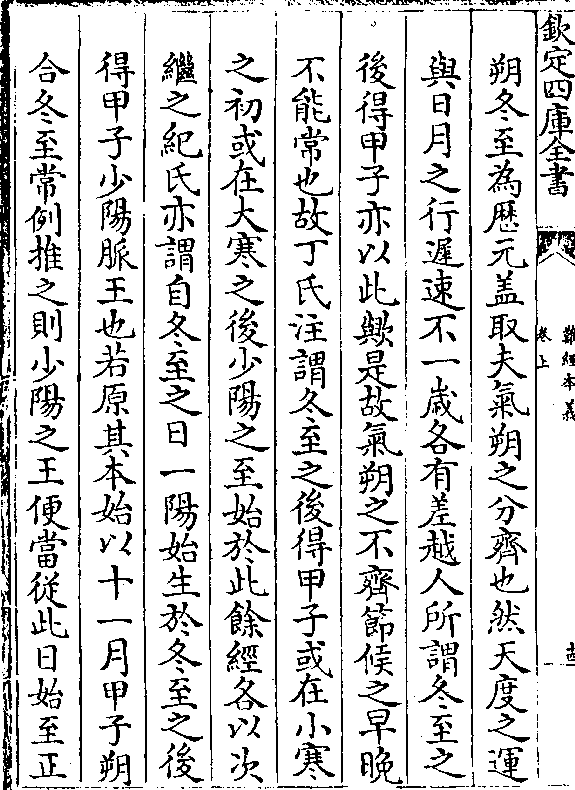 欽定四庫全書
難經本義
卷上
朔冬至為歴元盖取夫氣朔之分齊也然天度之運
與日月之行遲速不一歳各有差越人所謂冬至之
後得甲子亦以此歟是故氣朔之不齊節候之早晚
不能常也故丁氏注謂冬至之後得甲子或在小寒
之初或在大寒之後少陽之至始於此餘經各以次
繼之紀氏亦謂自冬至之日一陽始生於冬至之後
得甲子少陽脈王也若原其本始以十一月甲子朔
合冬至常例推之則少陽之王便當從此日始至正